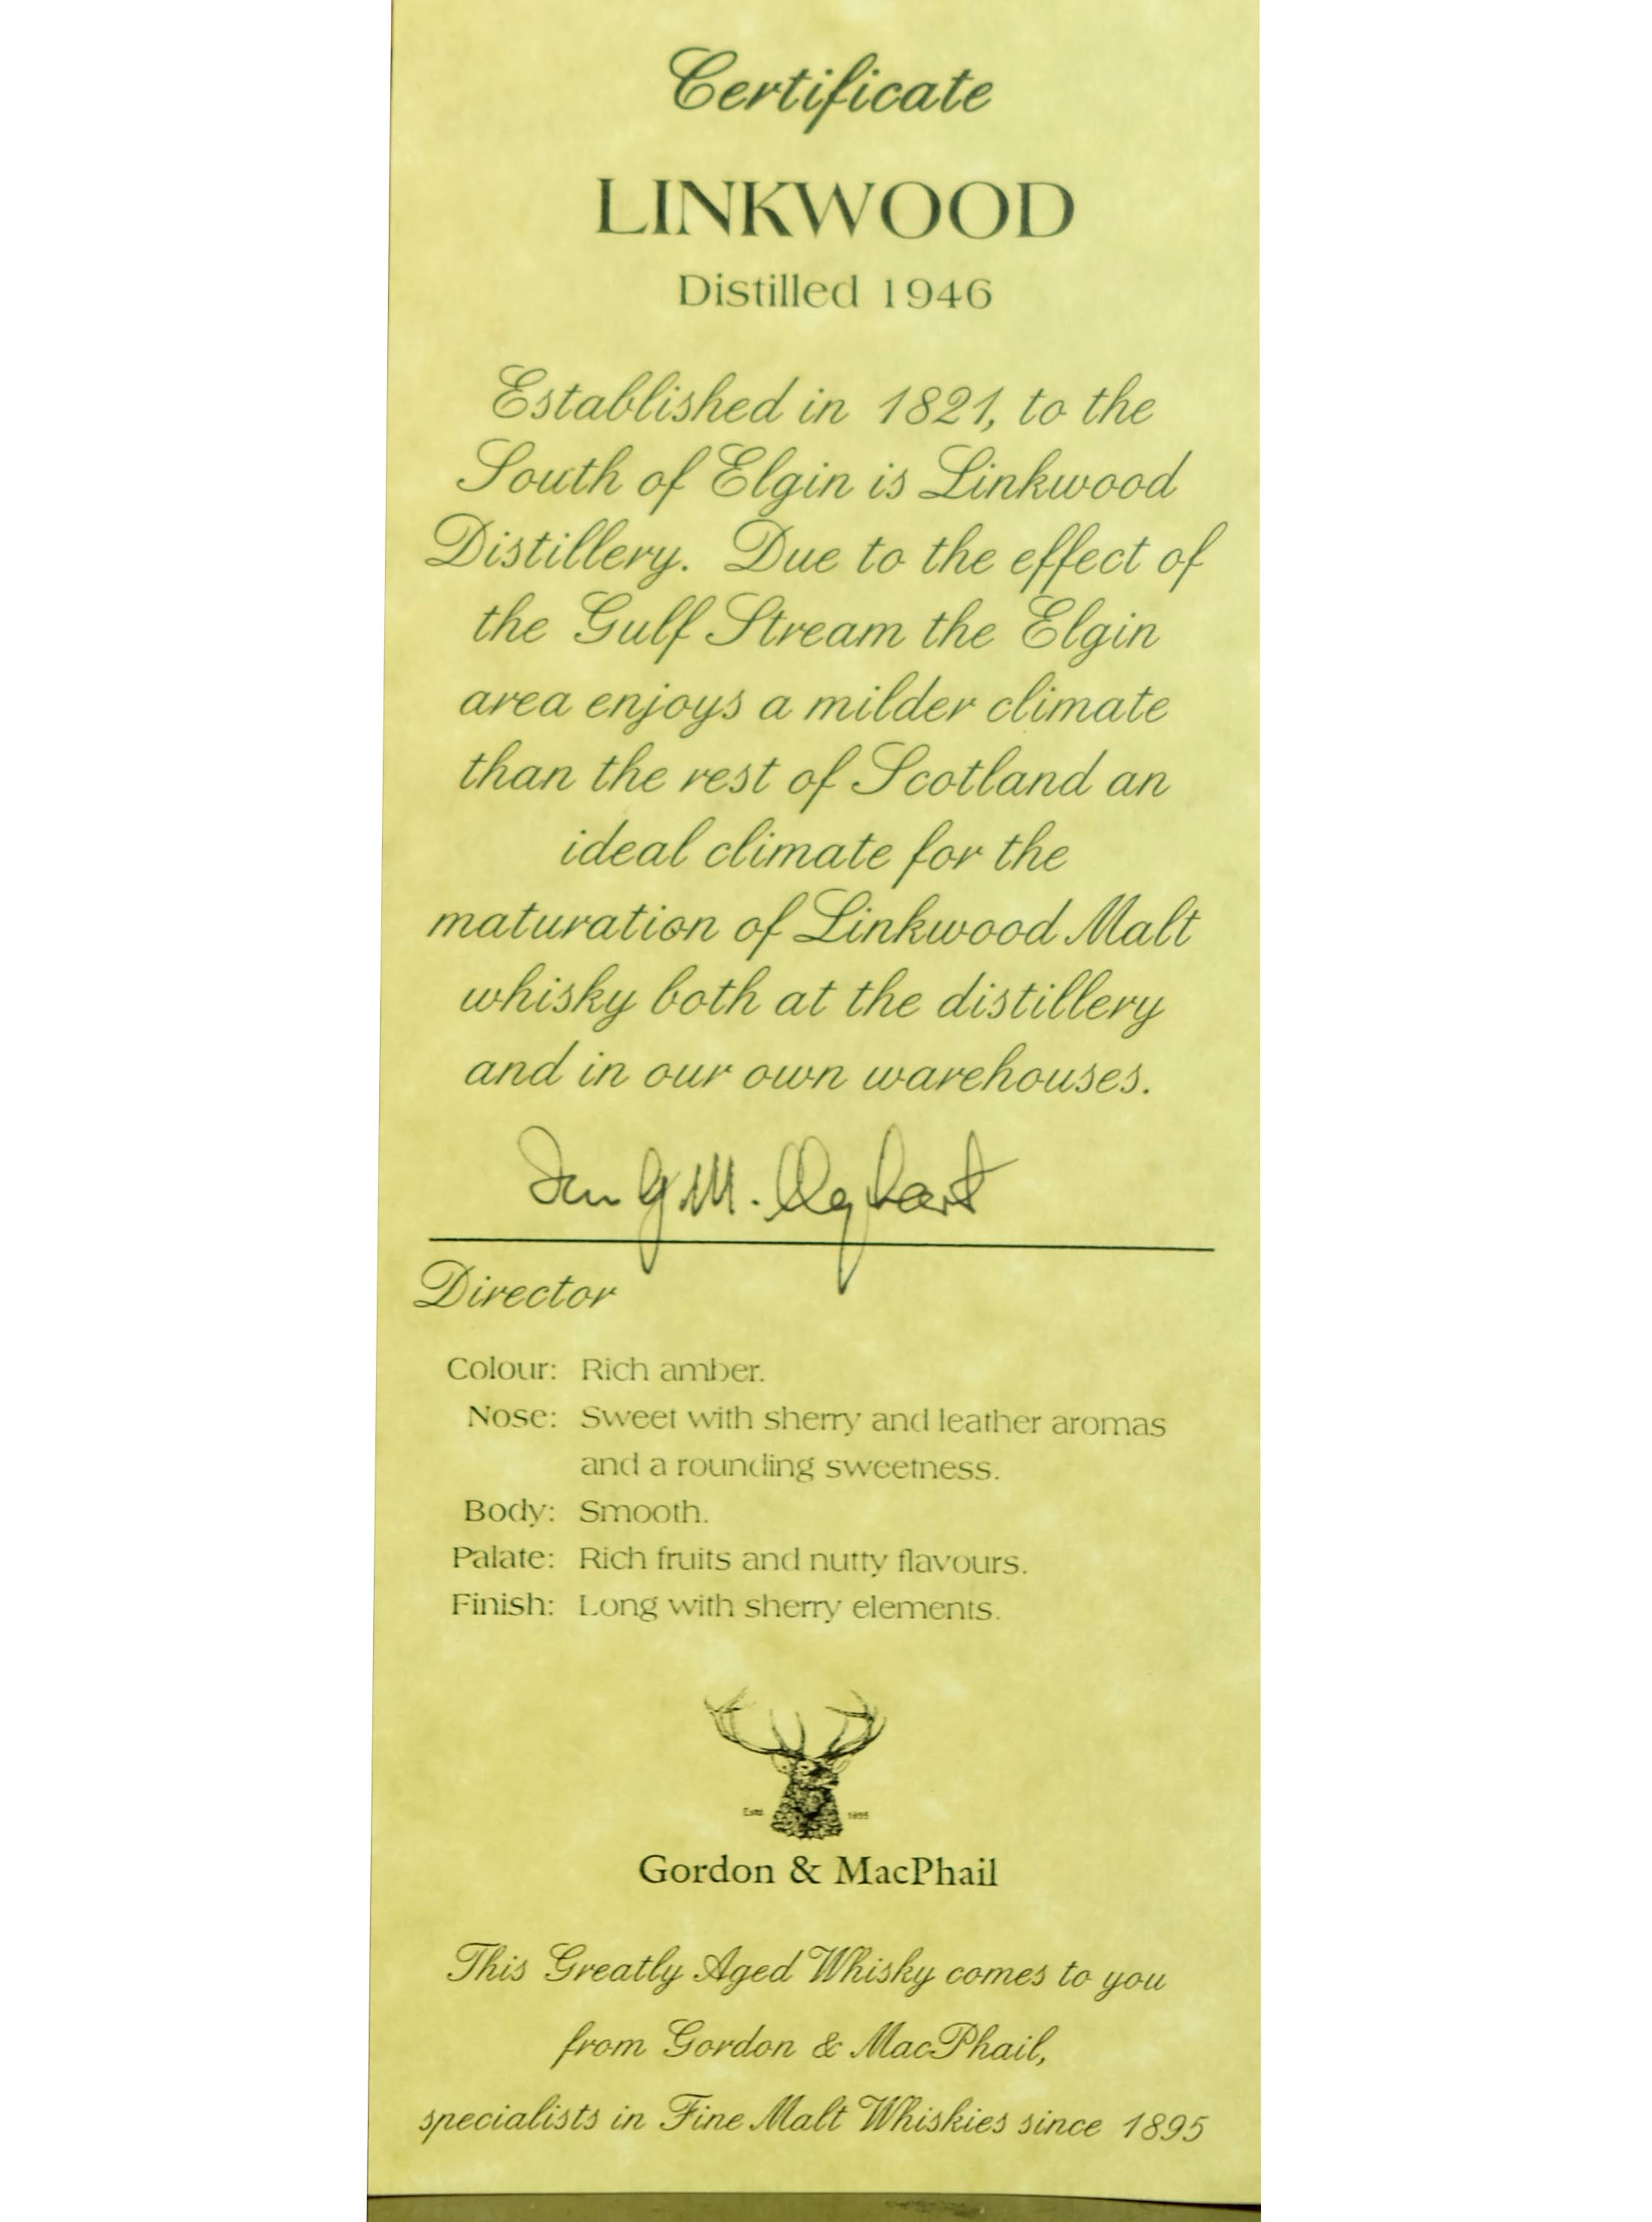 Certificate
LINKWOOD
Distilled 1946
Established in 1821, to the
South of Elgin is Linkwood
Distillery. Due to the effect of
the Gulf Stream the Elgin
area enjoys a milder climate
than the rest of Scotland an
ideal climate for the
maturation of Linkwood Malt
whisky both at the distillery
and in our own warehouses.
Director
Colour: Rich amber.
Nose: Sweet with sherry and leather aromas
and a rounding sweetness.
Body: Smooth.
Palate: Rich fruits and nutty flavours.
Finish: Long with sherry elements.
Estd. 1895
Gordon & MacPhail
This Greatly Aged Whisky comes to you
from Gordon & MacPhail,
specialists in Fine Malt Whiskies since 1895